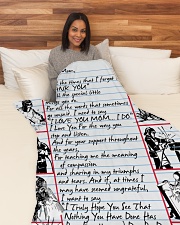 Mom,
the times that I forget
"NK YOU"
the special little
For all the words that sometimes
myself. I need to say
"I LOVE YOU MOM... I DO"
I Love You For the way you
stop and listen,
And for your support throughout
the years,
For teaching me the meaning
of compassion,
and sharing in my triumphs
and tears. And if, at times I
may have seemed ungrateful,
I want to say
I Truly Hope You See That
Nothing You Have Done Has